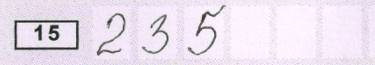 15 235